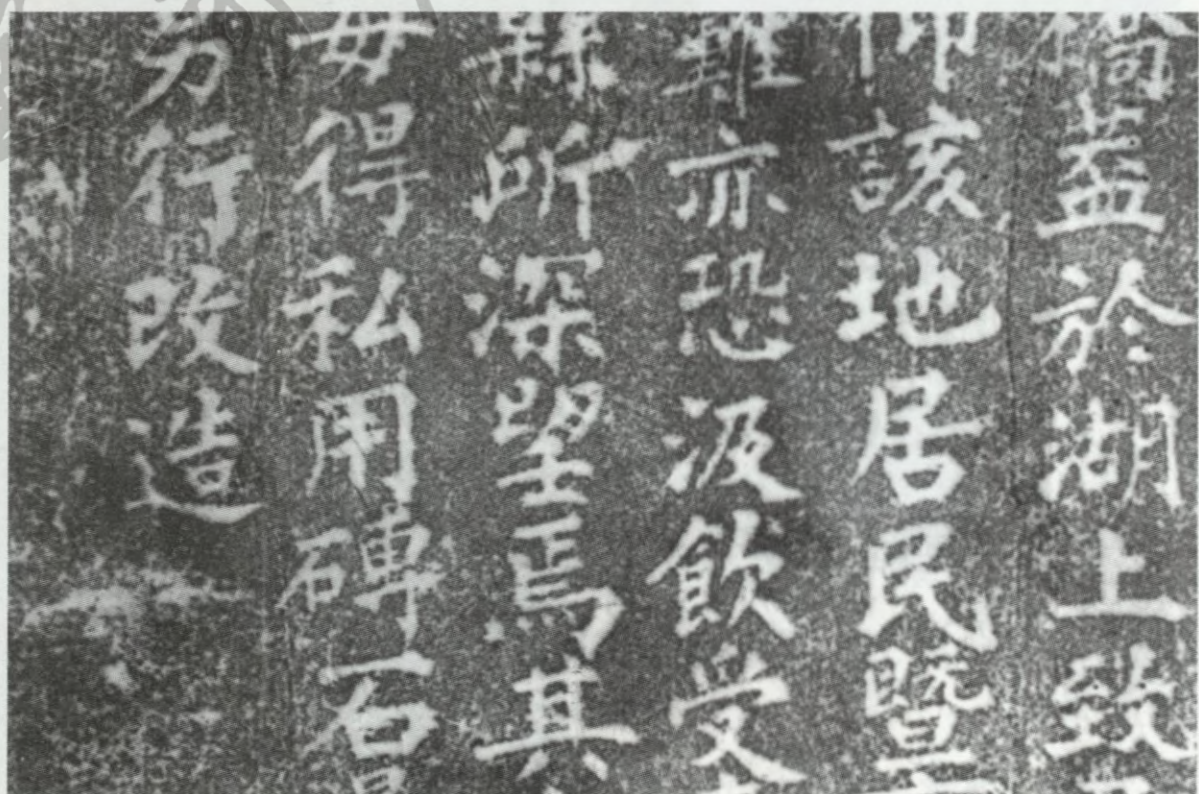 蓋於湖上致
仰該地居民暨
難亦恐汲飲受
縣所深望焉其
毋得私用磚石
另行改造